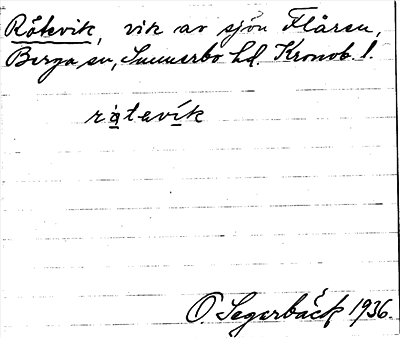 Råtevik, vik av sjön Flåren,
Berga sn, Sunnerbo hd. Kronob. l.
råtevík
O. Segerbäck 1936.